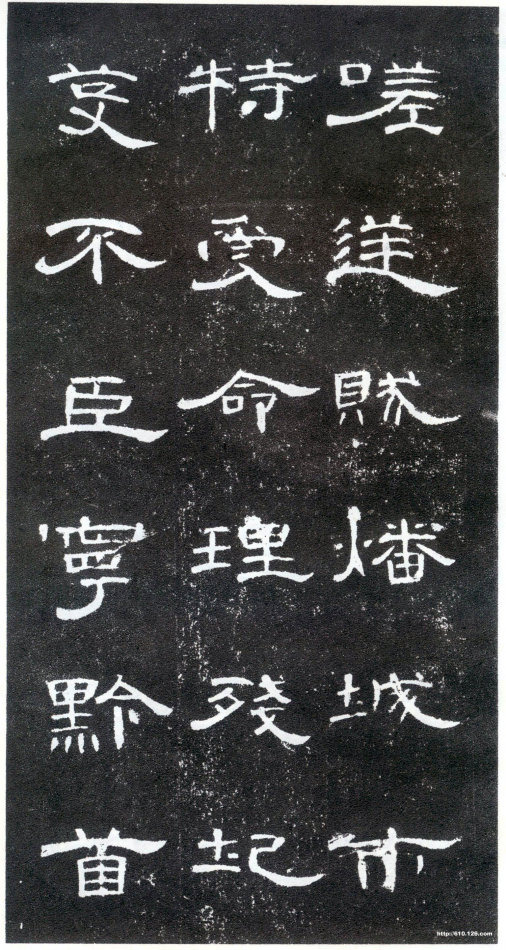 嗟逆賊燔城市
特受命理殘圮
芟不臣寧黔首
http://610.126.com